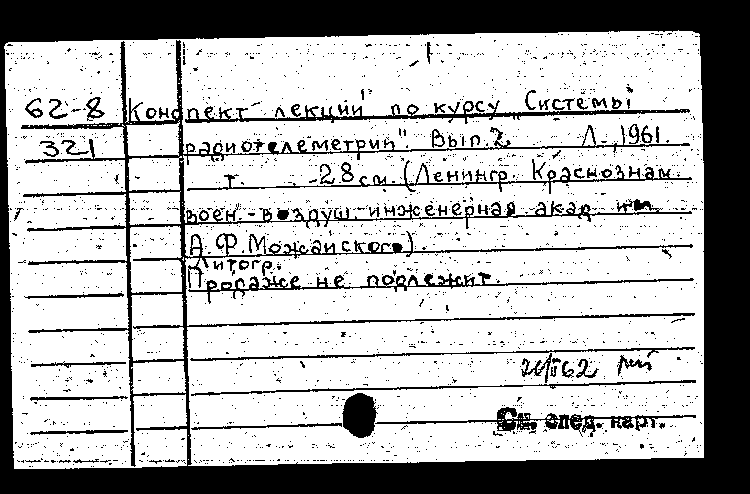 62-8 Конспект лекций по курсу „Системы
321 радиотелеметрии". Вып. 2 Л., 1961.
т. 28 см. (Ленингр. Краснознам.
воен.-воздуш. инженерная акад. им.
А.Ф. Можайского).
Литогр.
Продаже не подлежит.
См. спец. карт.